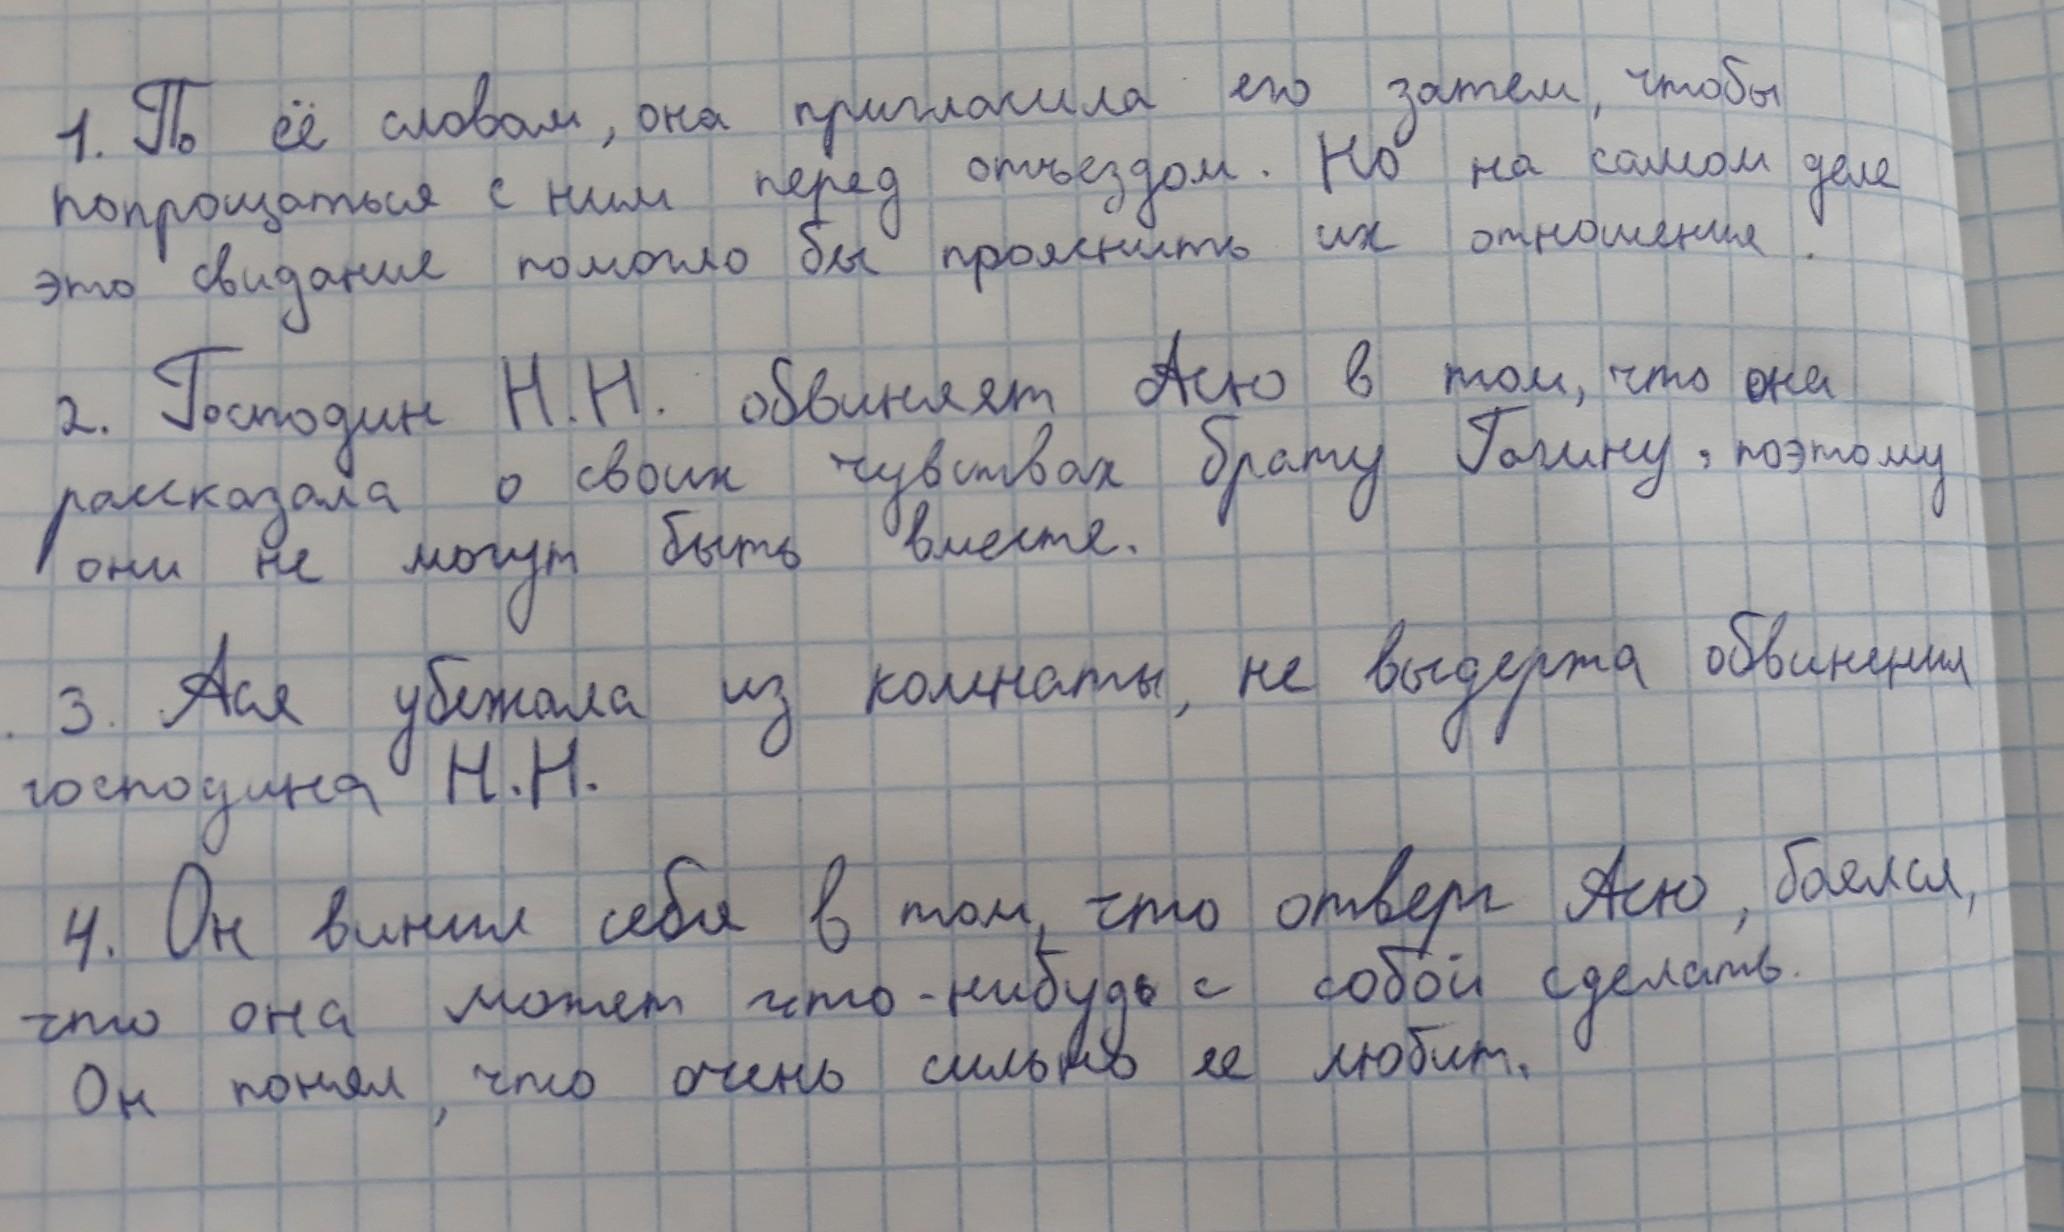 1. По её словам, она пригласила его затем, чтобы
попрощаться с ним перед отъездом. Но на самом деле
это свидание помогло бы прояснить их отношения.
2. Господин Н.Н. обвиняет Асю в том, что она
рассказала о своих чувствах брату Гагину, поэтому
они не могут быть вместе.
3. Ася убежала из комнаты, не выдержа обвинения
господина Н.Н.
4. Он винил себя в том, что отверг Асю, боялся,
что она может что-нибудь с собой сделать.
Он понял, что очень сильно ее любит.